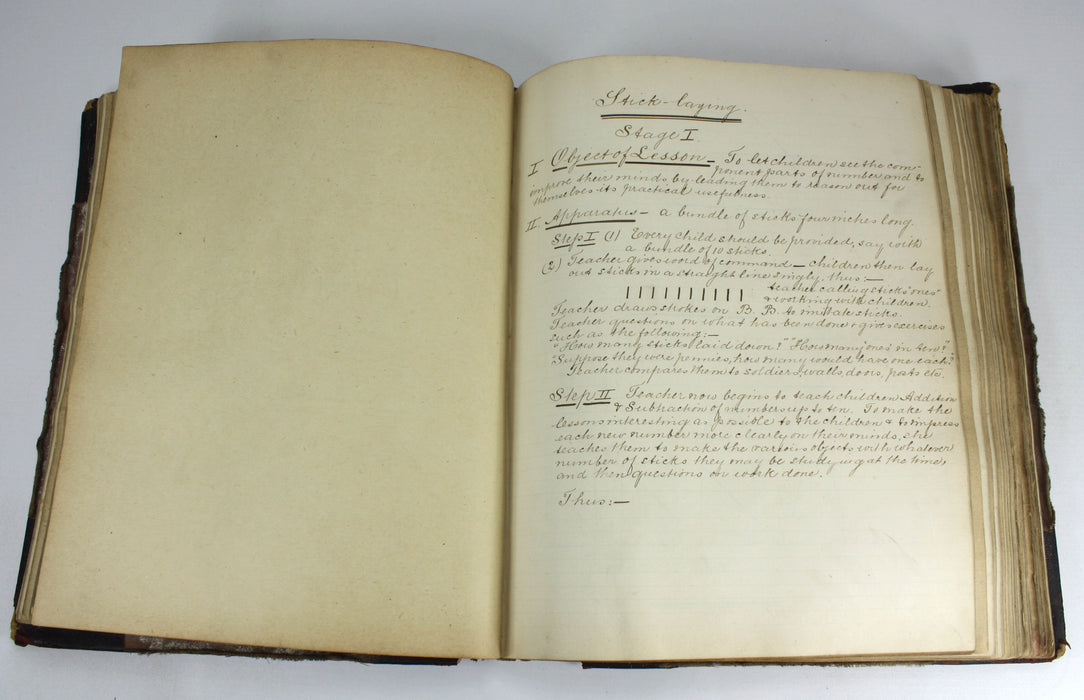 Stick-laying.
Stage I
I Object of Lesson – To let children see the com-
ponent parts of number and to
improve their minds, by leading them to reason out for
themselves its practical usefulness.
II. Apparatus – a bundle of sticks four inches long.
Step I (1) Every child should be provided, say with
a bundle of 10 sticks.
(2) Teacher gives word of command – children then lay
out sticks in a straight line singly, thus:–
teacher calling sticks "ones"
& working with children.
Teacher draws strokes on B. B. to imitate sticks.
Teacher questions on what has been done & gives exercises
such as the following:–
"How many sticks laid down?" "How many 'ones' in ten?"
"Suppose they were pennies, how many would have one each?"
Teacher compares them to soldiers, walls, doors, posts etc.
Step II Teacher now begins to teach children Addition
& Subtraction of numbers up to ten. To make the
lessons interesting as possible to the children & to impress
each new number more clearly on their minds, she
teaches them to make the various objects with whatever
number of sticks they may be studying at the time,
and then questions on work done.
Thus:–